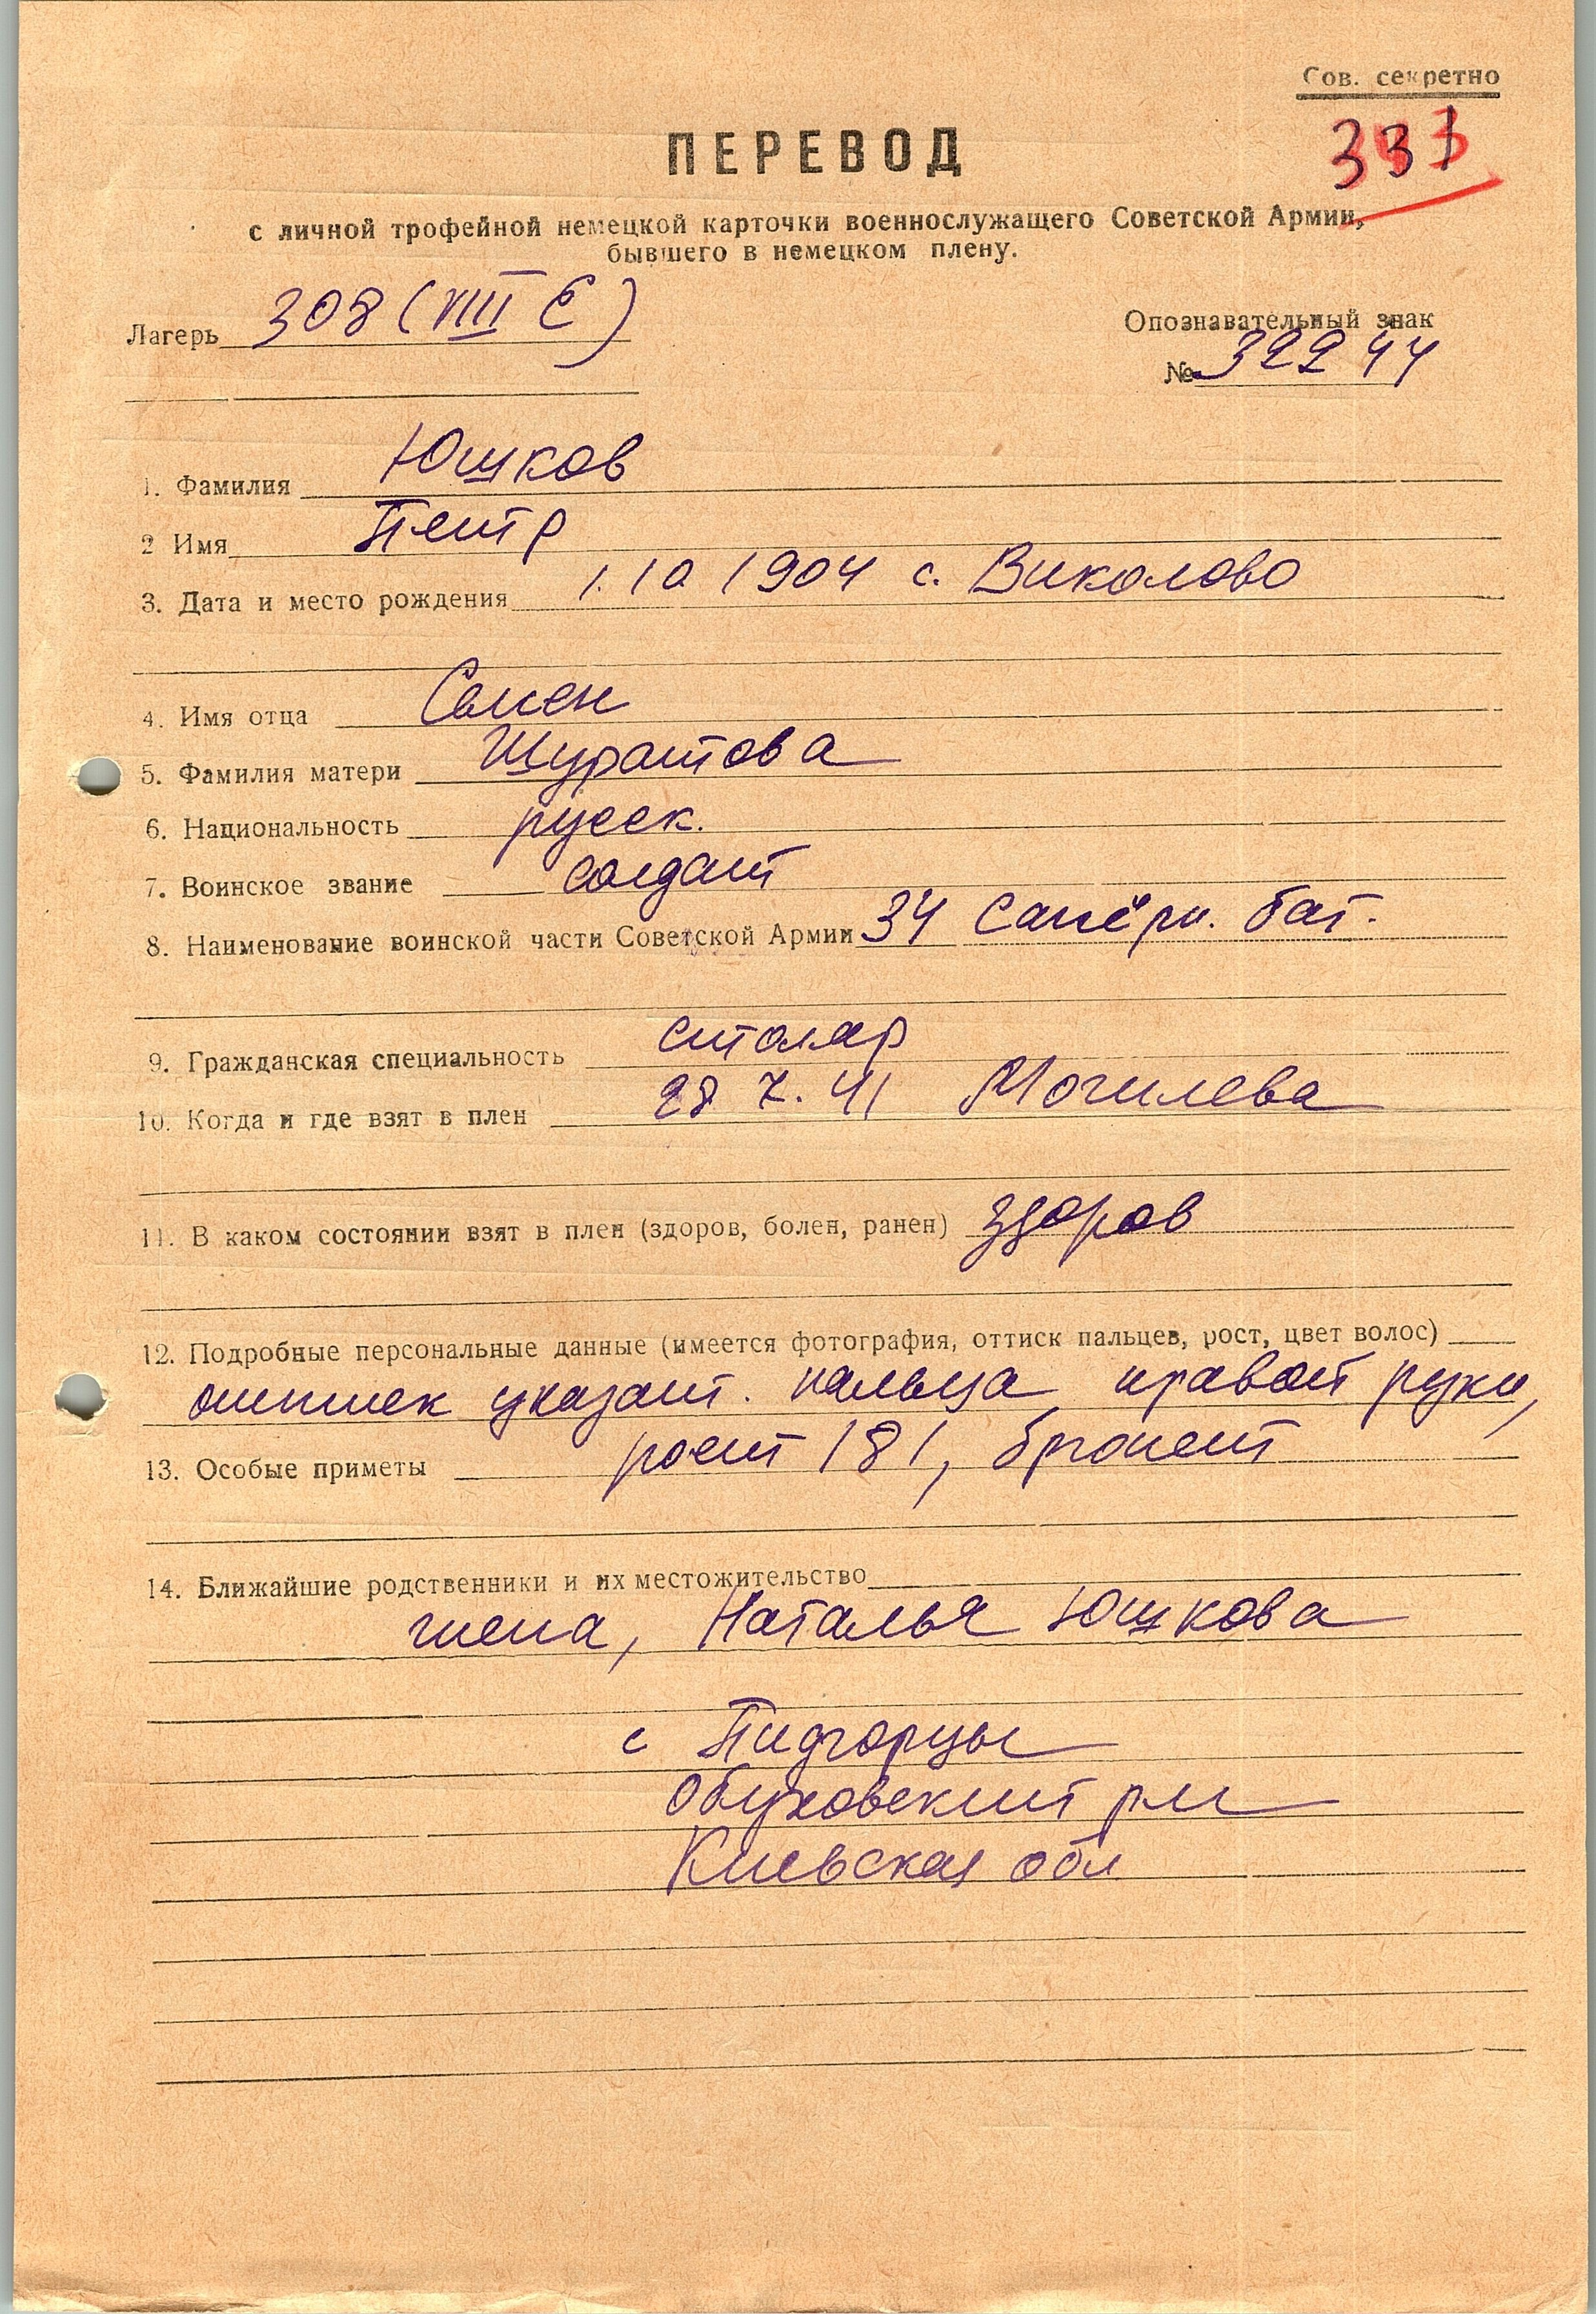 Сов. секретно
331
ПЕРЕВОД
с личной трофейной немецкой карточки военнослужащего Советской Армии,
бывшего в немецком плену.
Лагерь 308 (VIII E)
Опознавательный знак
№ 32244
1. Фамилия Юшков
2 Имя Петр
3. Дата и место рождения 1.10 1904 с. Виколово
4. Имя отца Семен
5. Фамилия матери Шуратова
6. Национальность русск.
7. Воинское звание солдат
8. Наименование воинской части Советской Армии 34 сапёрн. бат.
9. Гражданская специальность столяр
10. Когда и где взят в плен 28 7. 41 Могилева
11. В каком состоянии взят в плен (здоров, болен, ранен) здоров
12. Подробные персональные данные (имеется фотография, оттиск пальцев, рост, цвет волос)
оттиск указат. пальца правой руки,
13. Особые приметы рост 181, брюнет
14. Ближайшие родственники и их местожительство
жена, Наталья Юшкова
с Пидгорцы
Обуховский рн
Киевская обл